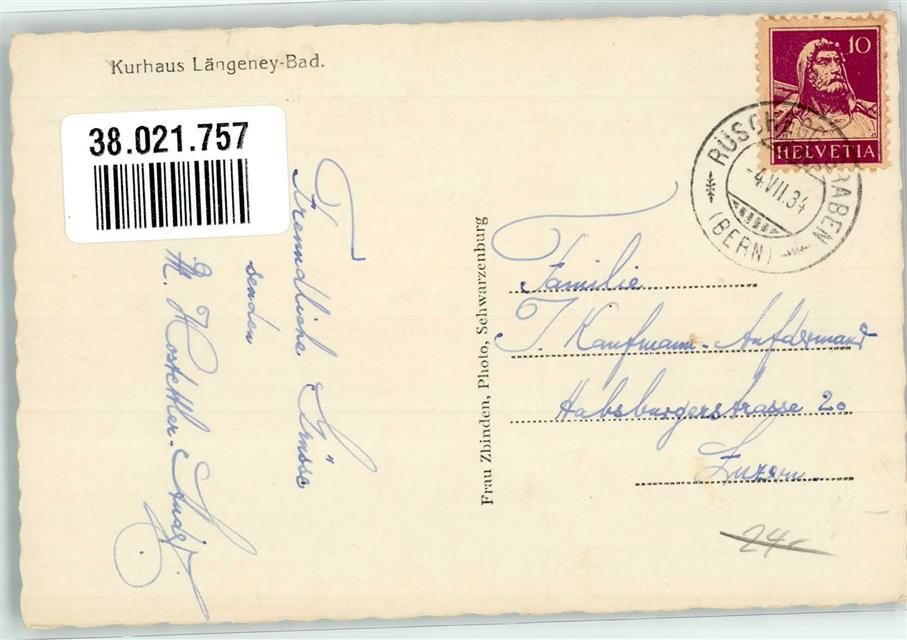 Kurhaus Längeney-Bad.
38.021.757
Freundliche Grüsse
senden
Hostettler-
Frau Zbinden, Photo, Schwarzenburg
10
HELVETIA
RÜSCHEGGGRABEN
-4.VII.34
(BERN)
Familie
J. Kaufmann-Aufdermaur
Habsburgerstrasse 20
Luzern
24.-